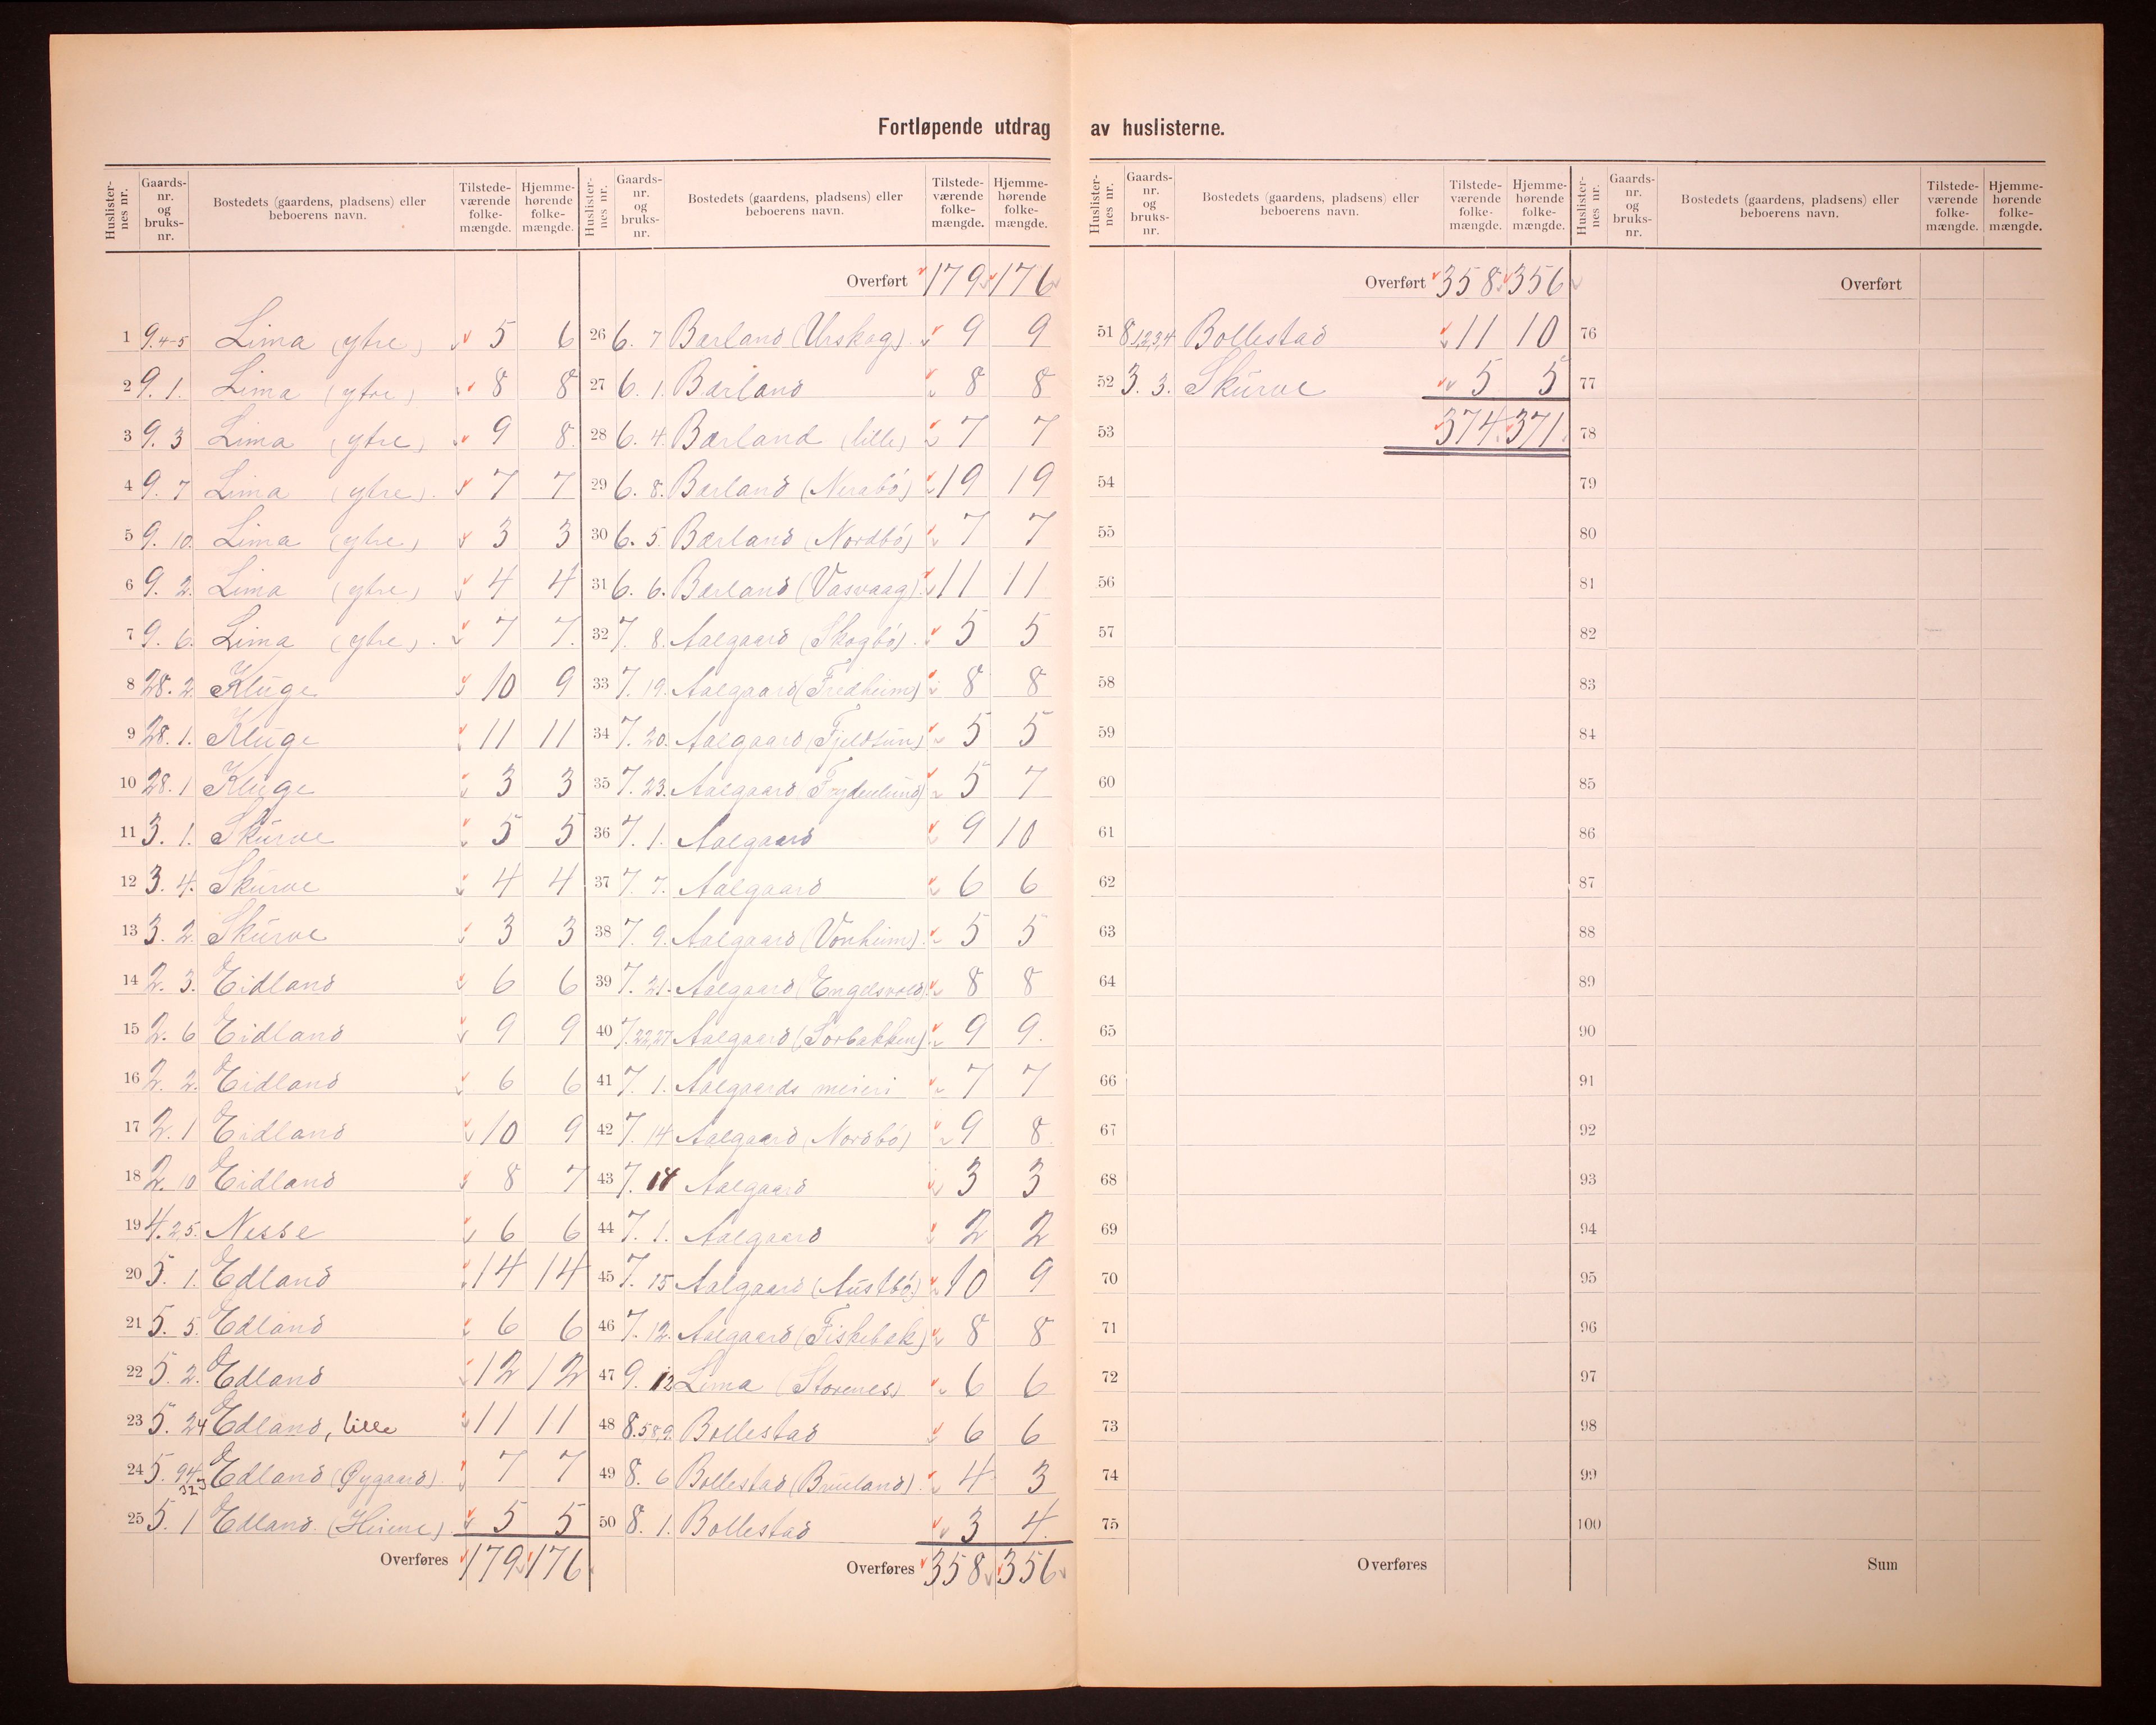 Fortløpende utdrag av huslisterne.
Huslisternes nr. Gaards-nr. og bruks-nr. Bostedets (gaardens, pladsens) eller beboerens navn. Tilstede-værende folke-mængde. Hjemme-hørende folke-mængde.
1 9. 4-5 Lima (ytre) 5 6
2 9. 1. Lima (ytre) 8 8
3 9. 3 Lima (ytre) 9 8.
4 9. 7 Lima (ytre). 7 7
5 9. 10. Lima (ytre) 3 3
6 9. 2. Lima (ytre) 4 4
7 9. 6. Lima (ytre). 7 7.
8 28. 2. Kluge 10 9
9 28. 1. Kluge 11 11
10 28. 1 Kluge 3 3
11 3. 1. Skurve 5 5
12 3. 4. Skurve 4 4
13 3. 2. Skurve 3 3
14 2. 3. Eidland 6 6
15 2. 6 Eidland 9 9
16 2. 2. Eidland 6 6
17 2. 1 Eidland 10 9
18 2. 10 Eidland 8 7
19 4. 25. Nesse 6 6
20 5. 1. Edland 14 14
21 5. 5. Edland 6 6
22 5. 2. Edland 12 12
23 5. 24 Edland, lille 11 11
24 5. Edland (Øygaard) 7 7
25 5. 1 Edland. (Heiene). 5 5
Overføres 179 176
Huslisternes nr. Gaards-nr. og bruks-nr. Bostedets (gaardens, pladsens) eller beboerens navn. Tilstede-værende folke-mængde. Hjemme-hørende folke-mængde.
Overført 179 176
26 6. 7 Bærland (Urskog). 9 9
27 6. 1. Bærland 8 8
28 6. 4. Bærland (lille) 7 7
29 6. 8. Bærland (Nerabø) 19 19
30 6. 5. Bærland (Nordbø) 7 7
31 6. 6. Bærland (Vasvaag) 11 11
32 7. 8. Aalgaard (Skogbø). 5 5
33 7. 19. Aalgaard (Fredheim) 8 8
34 7. 20. Aalgaard (Fjeldtun) 5 5
35 7. 23. Aalgaard (Frydenlund) 5 7
36 7. 1. Aalgaard 9 10
37 7. 7. Aalgaard 6 6
38 7. 9. Aalgaard (Vonheim). 5 5
39 7. 21. Aalgaard (Engelsvold) 8 8
40 7. 22,27 Aalgaard (Sorbakken) 9 9.
41 7. 1. Aalgaards meieri 7 7
42 7. 14 Aalgaard (Nordbø) 9 8.
43 7. 14 Aalgaard 3 3
44 7. 1. Aalgaard 2 2
45 7. 15 Aalgaard (Austbø) 10 9
46 7. 12. Aalgaard (Fiskebæk) 8 8
47 9. 12 Lima (Storenes) 6 6
48 8. 5 8,9. Bollestad 6 6
49 8. 6 Bollestad (Bruland). 4 3
50 8. 1. Bollestad 3 4.
Overføres 358 356
Huslisternes nr. Gaards-nr. og bruks-nr. Bostedets (gaardens, pladsens) eller beboerens navn. Tilstede-værende folke-mængde. Hjemme-hørende folke-mængde.
Overført 358 356
51 8 1,2,3,4 Bollestad 11 10
52 3. 3. Skurve 5 5
53 374. 371.
54
55
56
57
58
59
60
61
62
63
64
65
66
67
68
69
70
71
72
73
74
75
Overføres
Huslisternes nr. Gaards-nr. og bruks-nr. Bostedets (gaardens, pladsens) eller beboerens navn. Tilstede-værende folke-mængde. Hjemme-hørende folke-mængde.
Overført
76
77
78
79
80
81
82
83
84
85
86
87
88
89
90
91
92
93
94
95
96
97
98
99
100
Sum